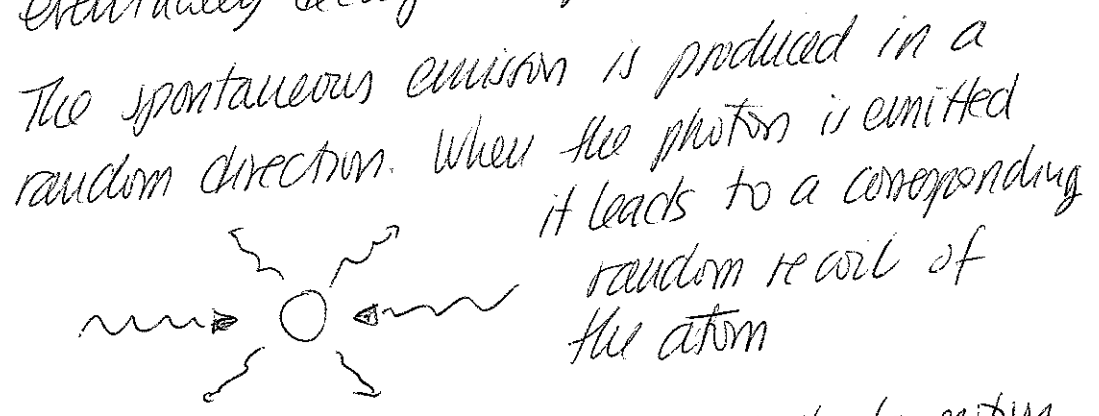 eventually decay
The spontaneous emission is produced in a
random direction. When the photon is emitted
it leads to a corresponding
random recoil of
the atom